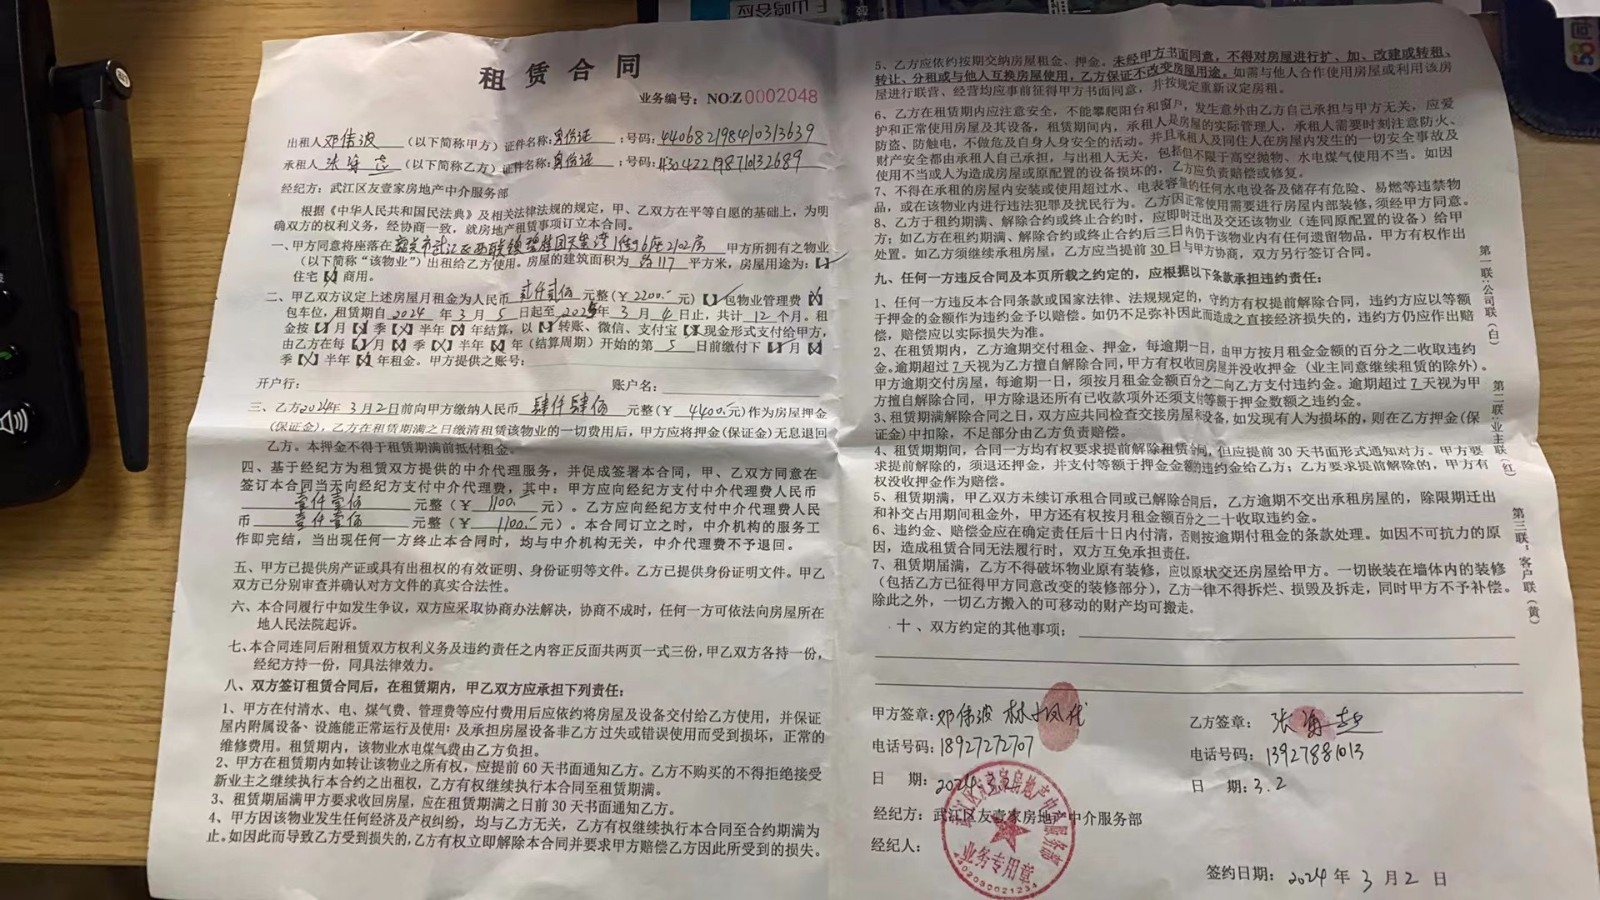 租赁合同
业务编号：NO:Z0002048
出租人邓伟波（以下简称甲方）证件名称:身份证：号码:440682198410313639
承租人张海（以下简称乙方）证件名称:身份证：号码:430422198710132689
经纪方：武江区友壹家房地产中介服务部
根据《中华人民共和国民法典》及相关法律法规的规定，甲、乙双方在平等自愿的基础上，为明
确双方的权利义务，经协商一致，就房地产租赁事项订立本合同。
一、甲方同意将座落在韶关市武江区西联镇碧桂园天玺湾1街6座2102房甲方所拥有之物业
（以下简称“该物业”）出租给乙方使用。房屋的建筑面积为约117平方米，房屋用途为：【】
住宅【】商用。
二、甲乙双方议定上述房屋月租金为人民币贰仟贰佰元整（￥2200.-元）【】包物业管理费【】
包车位，租赁期自2024年3月5日起至2025年3月4日止，共计12个月。租
金按【】月【】季【】半年【】年结算，以【】转账、微信、支付宝【】现金形式支付给甲方，
由乙方在每【】月【】季【】半年【】年（结算周期）开始的第5日前缴付下【】月【】
季【】半年【】年租金。甲方提供之账号：
开户行：账户名：
三、乙方2024年3月2日前向甲方缴纳人民币肆仟肆佰元整（￥4400.元）作为房屋押金
（保证金），乙方在租赁期满之日缴清租赁该物业的一切费用后，甲方应将押金（保证金）无息退回
乙方。本押金不得于租赁期满前抵付租金。
四、基于经纪方为租赁双方提供的中介代理服务，并促成签署本合同，甲、乙双方同意在
签订本合同当天向经纪方支付中介代理费，其中：甲方应向经纪方支付中介代理费人民币
壹仟壹佰元整（￥1100.元）。乙方应向经纪方支付中介代理费人民
币壹仟壹佰元整（￥1100.-元）。本合同订立之时，中介机构的服务工
作即完结，当出现任何一方终止本合同时，均与中介机构无关，中介代理费不予退回。
五、甲方已提供房产证或具有出租权的有效证明、身份证明等文件。乙方已提供身份证明文件。甲乙
双方已分别审查并确认对方文件的真实合法性。
六、本合同履行中如发生争议，双方应采取协商办法解决，协商不成时，任何一方可依法向房屋所在
地人民法院起诉。
七、本合同连同后附租赁双方权利义务及违约责任之内容正反面共两页一式三份，甲乙双方各持一份，
经纪方持一份，同具法律效力。
八、双方签订租赁合同后，在租赁期内，甲乙双方应承担下列责任：
1、甲方在付清水、电、煤气费、管理费等应付费用后应依约将房屋及设备交付给乙方使用，并保证
屋内附属设备、设施能正常运行及使用；及承担房屋设备非乙方过失或错误使用而受到损坏，正常的
维修费用。租赁期内，该物业水电煤气费由乙方负担。
2、甲方在租赁期内如转让该物业之所有权，应提前60天书面通知乙方。乙方不购买的不得拒绝接受
新业主之继续执行本合约之出租权，乙方有权继续执行本合同至租赁期满。
3、租赁期届满甲方要求收回房屋，应在租赁期满之日前30天书面通知乙方。
4、甲方因该物业发生任何经济及产权纠纷，均与乙方无关，乙方有权继续执行本合同至合约期满为
止。如因此而导致乙方受到损失的，乙方有权立即解除本合同并要求甲方赔偿乙方因此所受到的损失。
5、乙方应依约按期交纳房屋租金、押金。未经甲方书面同意，不得对房屋进行扩、加、改建或转租、
转让、分租或与他人互换房屋使用，乙方保证不改变房屋用途。如需与他人合作使用房屋或利用该房
屋进行联营、经营均应事前征得甲方书面同意，并按规定重新议定房租。
6、乙方在租赁期内应注意安全，不能攀爬阳台和窗户，发生意外由乙方自己承担与甲方无关，应爱
护和正常使用房屋及其设备，租赁期间内，承租人是房屋的实际管理人，承租人需要时刻注意防火、
防盗、防触电，不做危及自身人身安全的活动。并且承租人及同住人在房屋内发生的一切安全事故及
财产安全都由承租人自己承担，与出租人无关，包括但不限于高空抛物、水电煤气使用不当。如因
使用不当或人为造成房屋或原配置的设备损坏的，乙方应负责赔偿或修复。
7、不得在承租的房屋内安装或使用超过水、电表容量的任何水电设备及储存有危险、易燃等违禁物
品，或在该物业内进行违法犯罪及扰民行为。乙方因正常使用需要进行房屋内部装修，须经甲方同意。
8、乙方于租约期满、解除合约或终止合约时，应即时迁出及交还该物业（连同原配置的设备）给甲
方；如乙方在租约期满、解除合约或终止合约后三日内仍于该物业内有任何遗留物品，甲方有权作出
处置。如乙方须继续承租房屋，乙方应当提前30日与甲方协商，双方另行签订合同。
九、任何一方违反合同及本页所载之约定的，应根据以下条款承担违约责任：
1、任何一方违反本合同条款或国家法律、法规规定的，守约方有权提前解除合同，违约方应以等额
于押金的金额作为违约金予以赔偿。如仍不足弥补因此而造成之直接经济损失的，违约方仍应作出赔
偿，赔偿应以实际损失为准。
2、在租赁期内，乙方逾期交付租金、押金，每逾期一日，由甲方按月租金金额的百分之二收取违约
金。逾期超过7天视为乙方擅自解除合同，甲方有权收回房屋并没收押金（业主同意继续租赁的除外）。
甲方逾期交付房屋，每逾期一日，须按月租金金额百分之二向乙方支付违约金。逾期超过7天视为甲
方擅自解除合同，甲方除退还所有已收款项外还须支付等额于押金数额之违约金。
3、租赁期满解除合同之日，双方应共同检查交接房屋和设备，如发现有人为损坏的，则在乙方押金（保
证金）中扣除，不足部分由乙方负责赔偿。
4、租赁期期间，合同一方均有权要求提前解除租赁合同，但应提前30天书面形式通知对方。甲方要
求提前解除的，须退还押金，并支付等额于押金金额的违约金给乙方；乙方要求提前解除的，甲方有
权没收押金作为赔偿。
5、租赁期满，甲乙双方未续订承租合同或已解除合同后，乙方逾期不交出承租房屋的，除限期迁出
和补交占用期间租金外，甲方还有权按月租金金额百分之二十收取违约金。
6、违约金、赔偿金应在确定责任后十日内付清，否则按逾期付租金的条款处理。如因不可抗力的原
因，造成租赁合同无法履行时，双方互免承担责任。
7、租赁期届满，乙方不得破坏物业原有装修，应以原状交还房屋给甲方。一切嵌装在墙体内的装修
（包括乙方已征得甲方同意改变的装修部分），乙方一律不得拆烂、损毁及拆走，同时甲方不予补偿。
除此之外，一切乙方搬入的可移动的财产均可搬走。
十、双方约定的其他事项：
甲方签章：邓伟波 林小凤代
乙方签章：张海
电话号码：18927272707
电话号码：13927881013
日期：2024
日期：3.2
经纪方：武江区友壹家房地产中介服务部
经纪人：
签约日期：2024年3月2日
武江区友壹家房地产中介服务部
业务专用章
4402090021234
第一联：公司联（白）
第二联：业主联（红）
第三联：客户联（黄）
山鸣谷应
58同